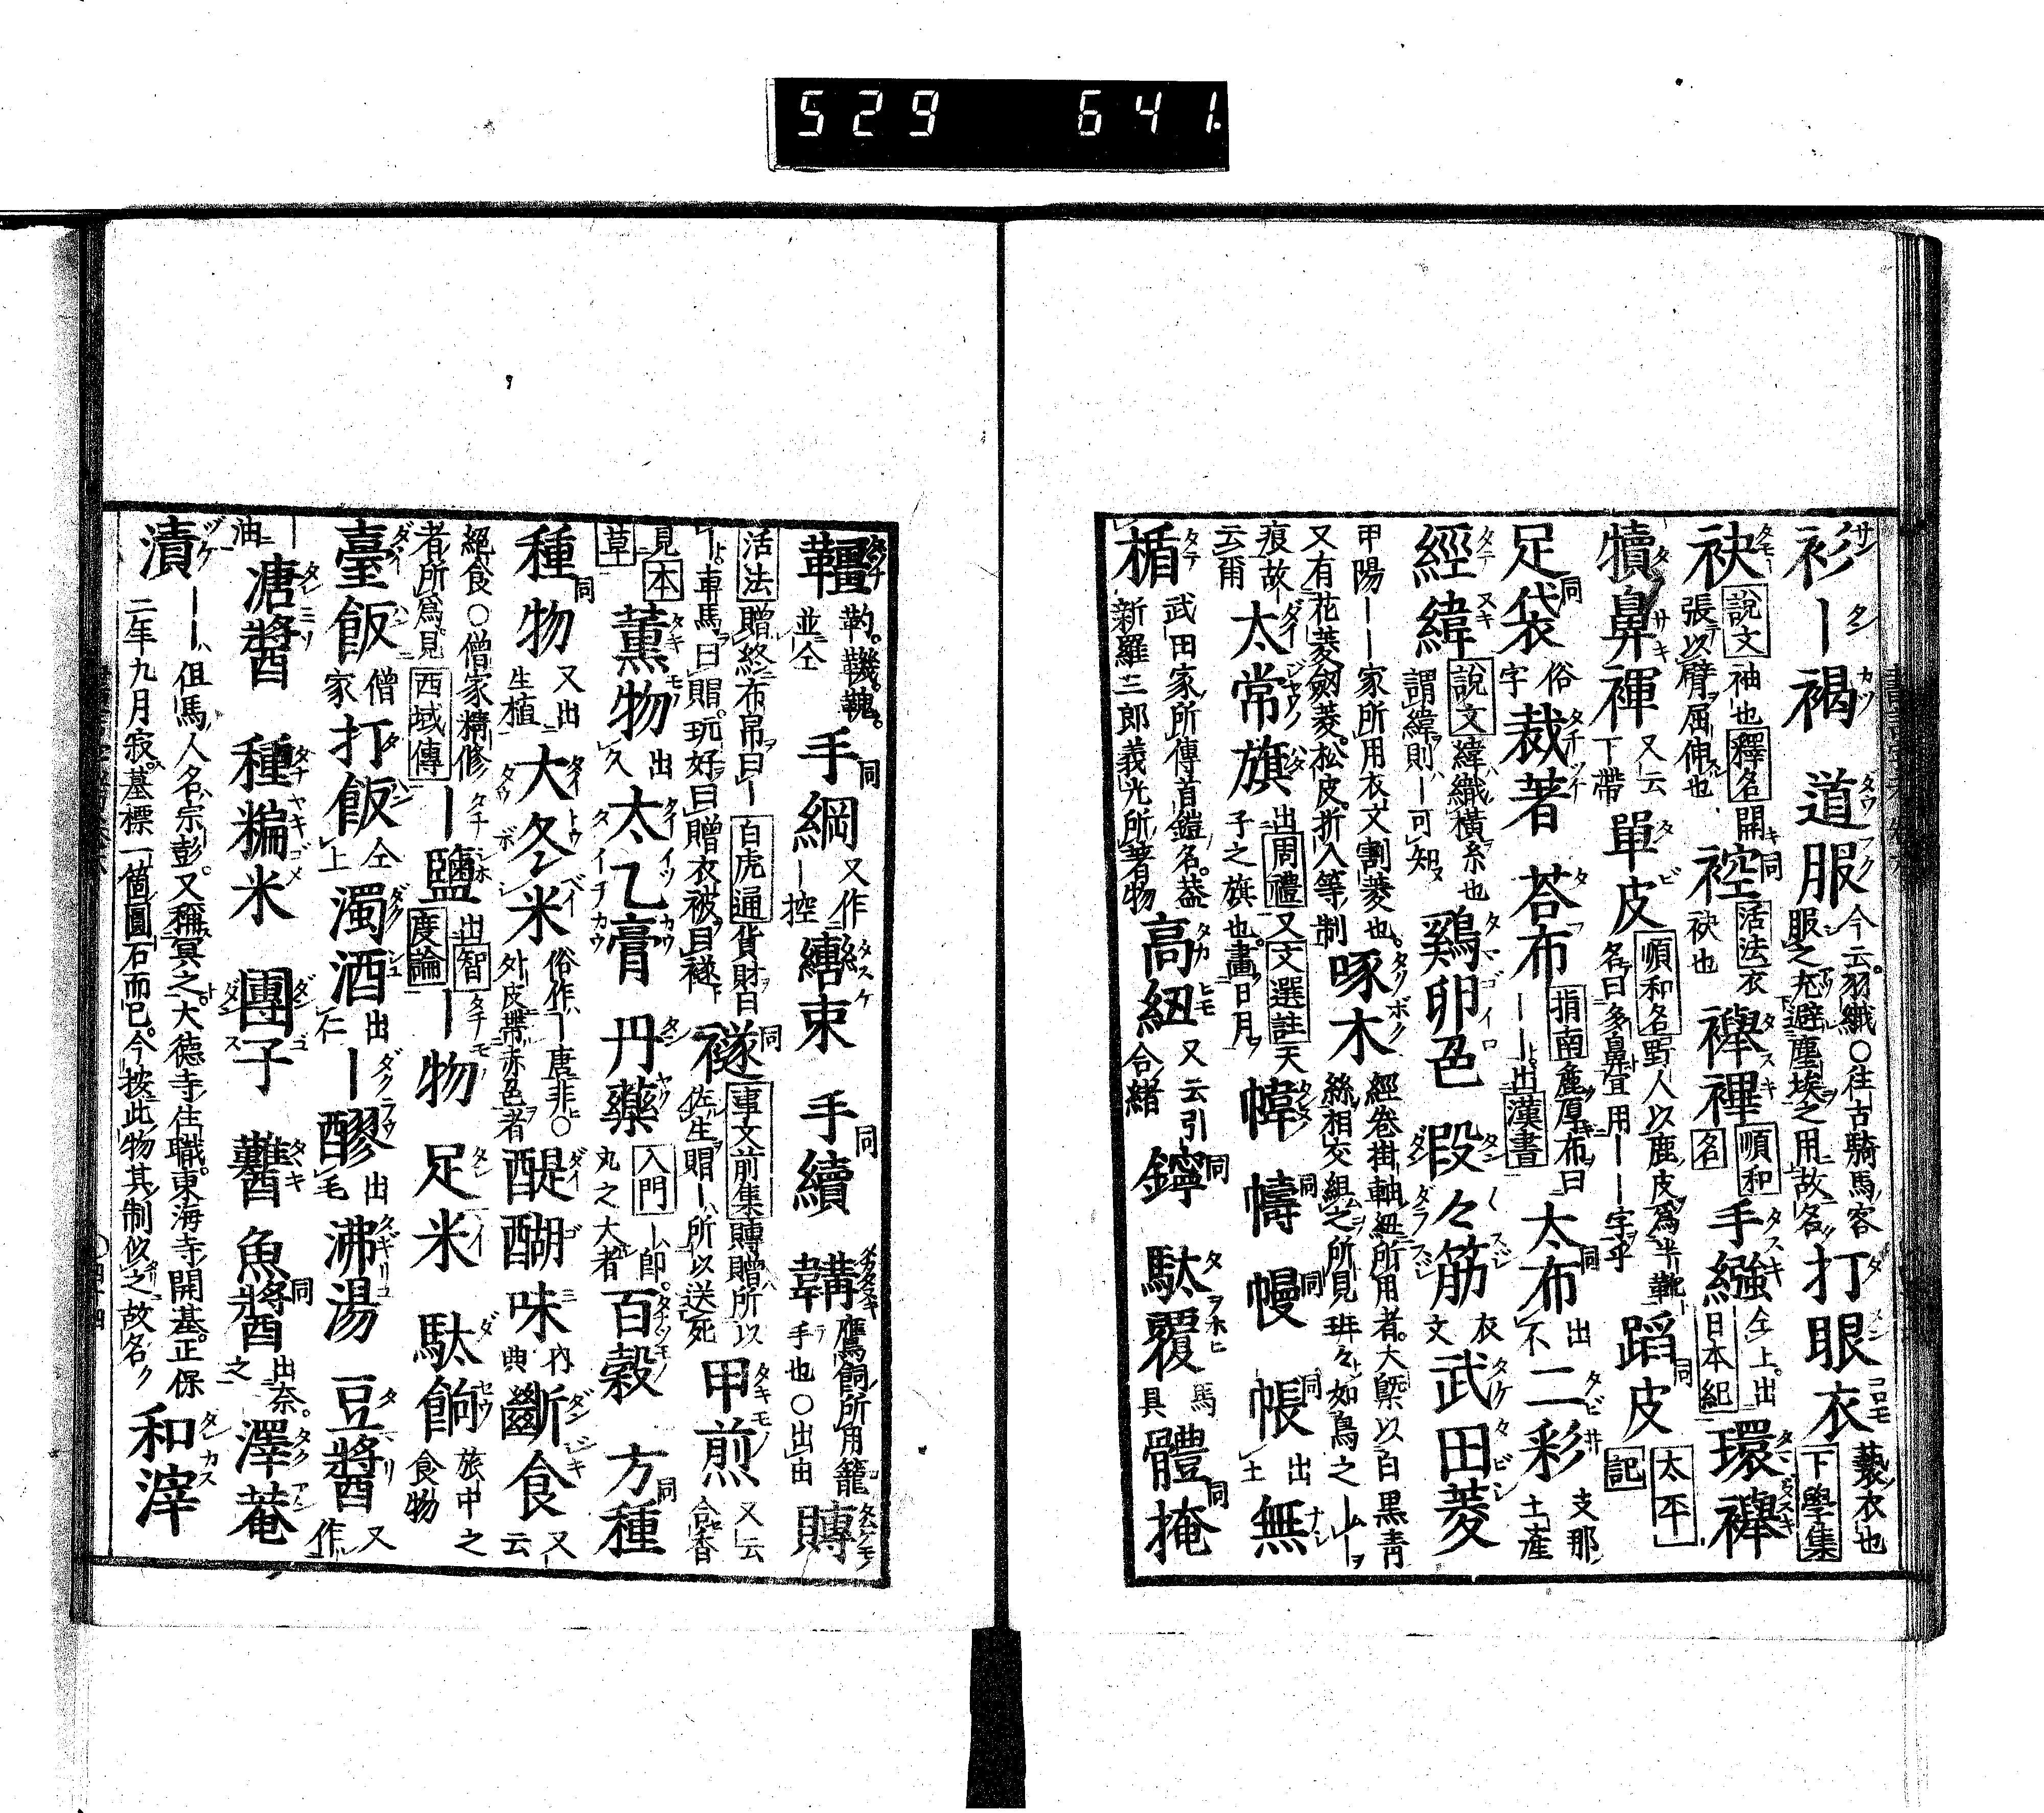 529 641.
衫ー褐 道服 今云羽織○往古騎馬ノ客服之充避塵埃之用故名 打眼衣 褻衣也 下學集
袂 說文 袖也 釋名 開張以臂屈伸也 袿 同 活法 衣袂也 襷襅 順和名 手繦 仝上出 日本紀 環襷
犢鼻褌 又云下帶 單皮 順和名 野人以鹿皮爲半靴名曰多鼻宜用ーー字乎 蹈皮 同 太平記
足袋 同 俗字 裁著 荅布 ーー出漢書 指南 麁厚布曰 太布 同 出不 二彩 支那土產
經緯 說文 緯織橫糸也謂緯則ー可知 鷄卵色 段々筋 衣文 武田菱
甲陽ーー家所用衣文割菱也又有花菱劔菱松皮折入等制 啄木 經卷掛軸紐所用者大槩以白黑靑絲相交組之所見班々如鳥之ーー
痕故云爾 太常旗 出周禮 又文選註 天子之旗也畫日月 幃 幬 同 幔 同 帳 同 出土 無
楯 武田家所傳首鎧名蓋新羅三郎義光所著物 高紐 又云引合緒 鐸 同 駄覆 馬具 體掩 同
韁 靮鞿 並仝 手綱 同 又作ー控 縖束 手續 同 韝 鷹飼所用籠手也○出由 賻
活法 贈終布帛曰ー 百虎通 貨財曰ー車馬曰賵玩好曰贈衣被曰襚 襚 同 事文前集 賻贈所以佐生賵ー所以送死 甲煎 又云合香
見本草 薰物 出久 太乙膏 丹藥 入門 ー即丸之大者 百穀 方種 同
種物 同 又出生植 大冬米 俗作ー唐非○外皮帶赤色者 醍醐味 內典 斷食 又云
絕食○僧家精修者所爲見西域傳 ー鹽 出智度論 ー物 足米 駄餉 旅中之食物
臺飯 僧家 打飯 仝上 濁酒 出仁 ー醪 出毛 沸湯 豆醬 又作
ー油 溏醬 種糄米 團子 魚醬 同 出奈之 澤菴
漬 ーー但馬人名宗彭又稱冥之大德寺住職東海寺開基正保二年九月寂墓標一箇圓石而已今按此物其制似之故名 和滓